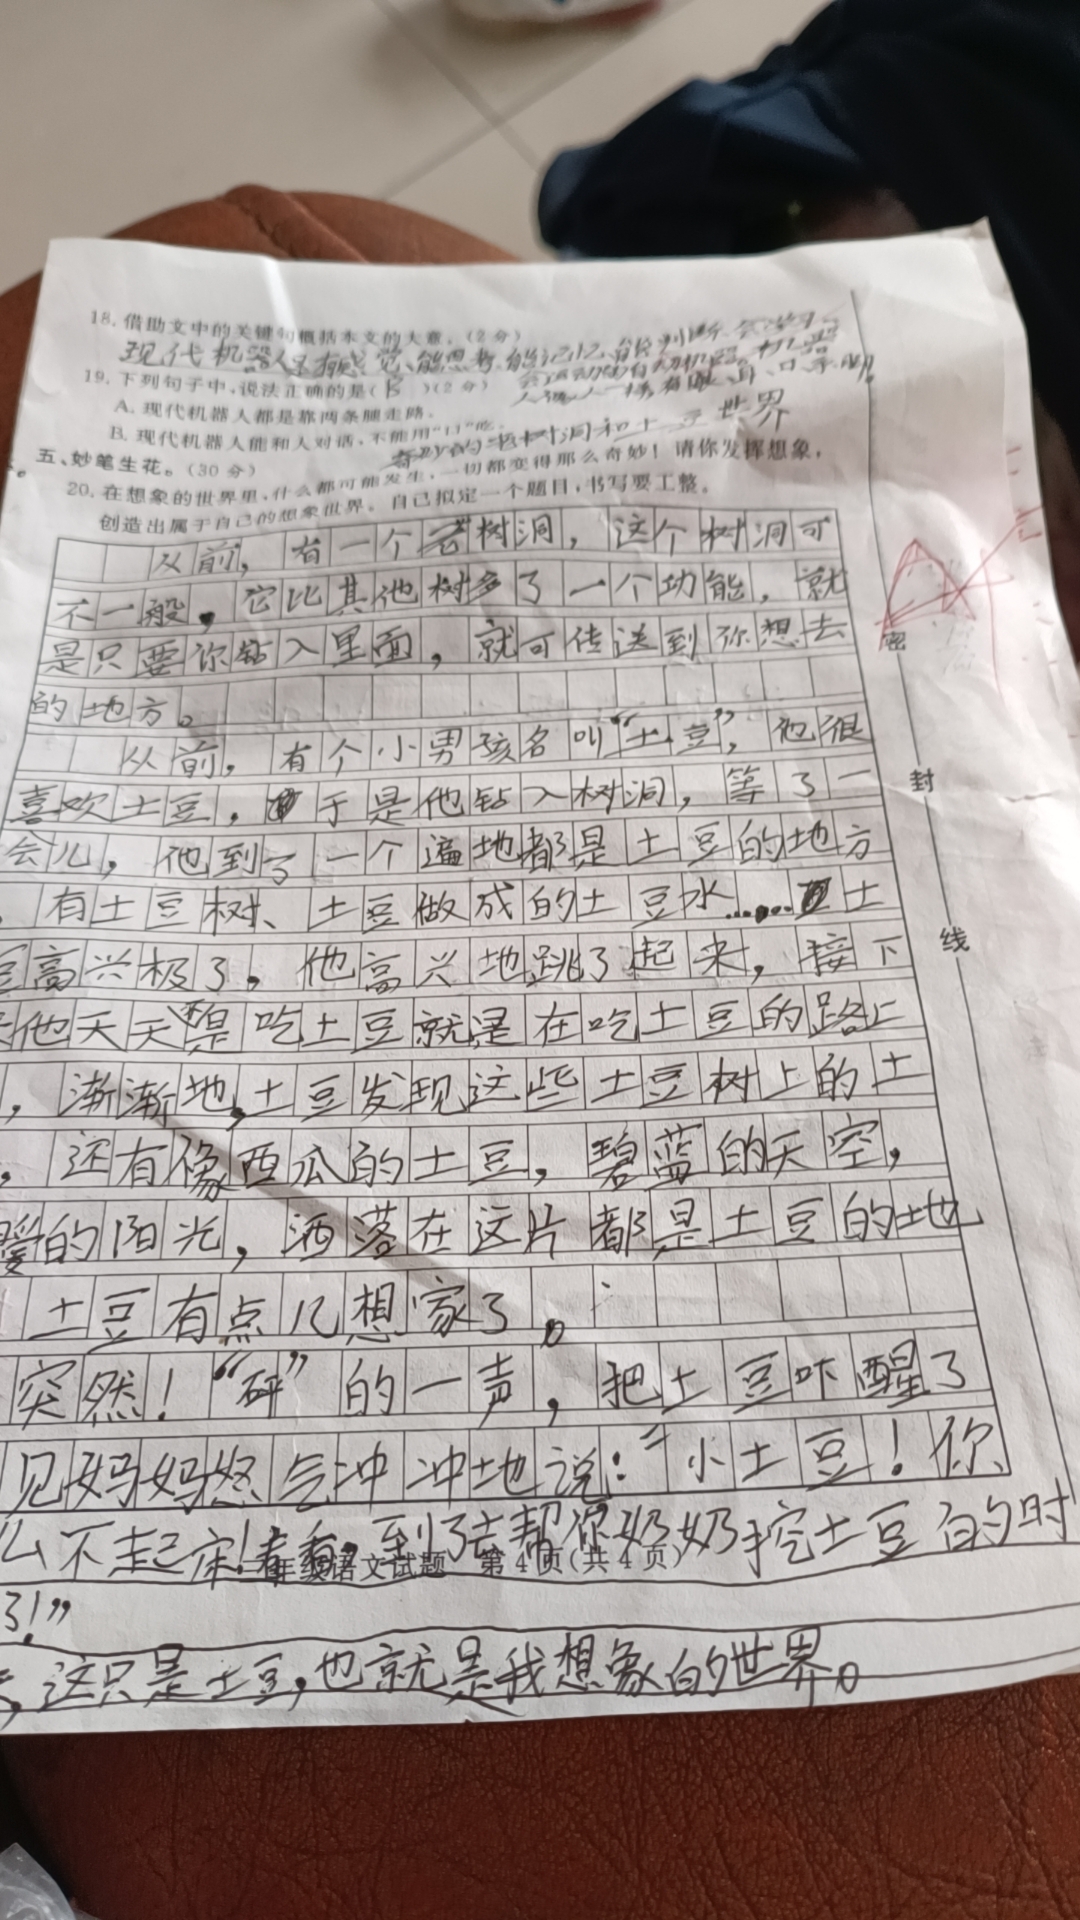 18. 借助文中的关键句概括本文的大意。(2分)
现代机器人还有感觉、能思考、能记忆、能判断、会学习、
会运动
19. 下列句子中,说法正确的是( B )(2分)
A. 现代机器人都是靠两条腿走路。
B. 现代机器人能和人对话,不能用“口”吃。
的老树洞和土豆世界
五、妙笔生花。(30分)
20. 在想象的世界里,什么都可能发生,一切都变得那么奇妙!请你发挥想象,
创造出属于自己的想象世界。自己拟定一个题目,书写要工整。
从前,有一个老树洞,这个树洞可
不一般,它比其他树多了一个功能,就
是只要你钻入里面,就可传送到你想去
的地方。
从前,有个小男孩名叫“土豆”,他很
喜欢土豆,于是他钻入树洞,等了一
会儿,他到了一个遍地都是土豆的地方
,有土豆树、土豆做成的土豆水……土
豆高兴极了,他高兴地跳了起来,接下
来他天天不是吃土豆就是在吃土豆的路上
,渐渐地,土豆发现这些土豆树上的土
,还有像西瓜的土豆,碧蓝的天空,
暖的阳光,洒落在这片都是土豆的地
土豆有点儿想家了。
突然!“砰”的一声,把土豆吓醒了
见妈妈怒气冲冲地说:“小土豆!你
么不起床!看看,到了去帮你奶奶挖土豆的时
了!”
,这只是土豆,也就是我想象的世界。
年级语文试题 第4页(共4页)
密
封
线